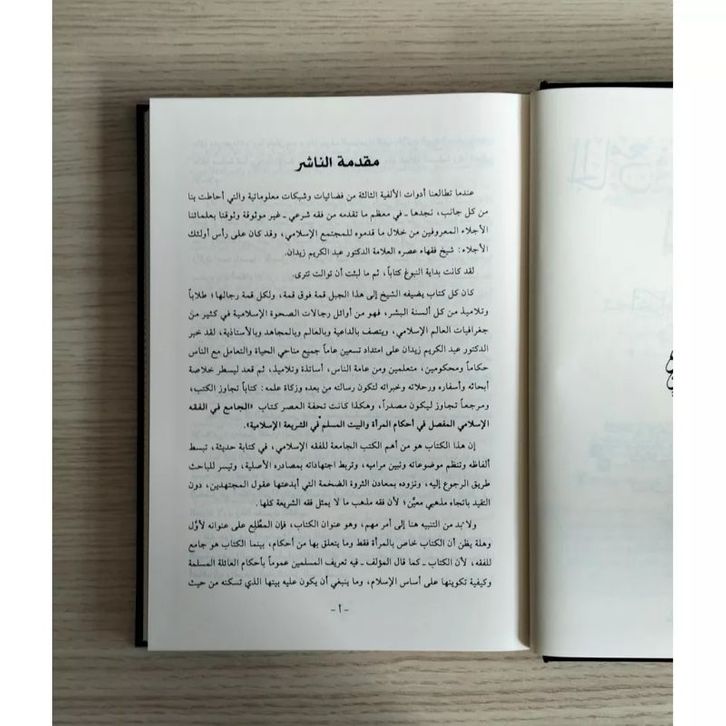 مقدمة الناشر
عندما تطالعنا أدوات الألفية الثالثة من فضائيات وشبكات معلوماتية والتي أحاطت بنا
من كل جانب، نجدها ـ في معظم ما تقدمه من فقه شرعي ـ غير موثوقة وثوقنا بعلمائنا
الأجلاء المعروفين من خلال ما قدموه للمجتمع الإسلامي، وقد كان على رأس أولئك
الأجلاء: شيخ فقهاء عصره العلامة الدكتور عبد الكريم زيدان.
لقد كانت بداية النبوغ كتاباً، ثم ما لبثت أن توالت تترى.
كان كل كتاب يضيفه الشيخ إلى هذا الجبل قمة فوق قمة، ولكل قمة رجالها؛ طلاباً
وتلاميذ من كل ألسنة البشر، فهو من أوائل رجالات الصحوة الإسلامية في كثير من
جغرافيات العالم الإسلامي، ويتصف بالداعية وبالعالم وبالمجاهد وبالأستاذية، لقد خبر
الدكتور عبد الكريم زيدان على امتداد تسعين عاماً جميع مناحي الحياة والتعامل مع الناس
حكاماً ومحكومين، متعلمين ومن عامة الناس، أساتذة وتلاميذ، ثم قعد ليسطر خلاصة
أبحاثه وأسفاره ورحلاته وخبراته لتكون رسالته من بعده وزكاة علمه: كتاباً تجاوز الكتب،
ومرجعاً تجاوز ليكون مصدراً، وهكذا كانت تحفة العصر كتاب «الجامع في الفقه
الإسلامي المفصل في أحكام المرأة والبيت المسلم في الشريعة الإسلامية».
إن هذا الكتاب هو من أهم الكتب الجامعة للفقه الإسلامي، في كتابة حديثة، تبسط
ألفاظه وتنظم موضوعاته وتبين مراميه، وتربط اجتهاداته بمصادره الأصلية، وتيسر للباحث
طريق الرجوع إليه، وتزوده بمعادن الثروة الضخمة التي أبدعتها عقول المجتهدين، دون
التقيد باتجاه مذهبي معيَّن؛ لأن فقه مذهب ما لا يمثل فقه الشريعة كلها.
ولا بد من التنبيه هنا إلى أمر مهم، وهو عنوان الكتاب، فإن المطَّلِع على عنوانه لأوَّل
وهلة يظن أن الكتاب خاص بالمرأة فقط وما يتعلق بها من أحكام، بينما الكتاب هو جامع
للفقه، لأن الكتاب ـ كما قال المؤلف ـ فيه تعريف المسلمين عموماً بأحكام العائلة المسلمة
وكيفية تكوينها على أساس الإسلام، وما ينبغي أن يكون عليه بيتها الذي تسكنه من حيث
- أ -